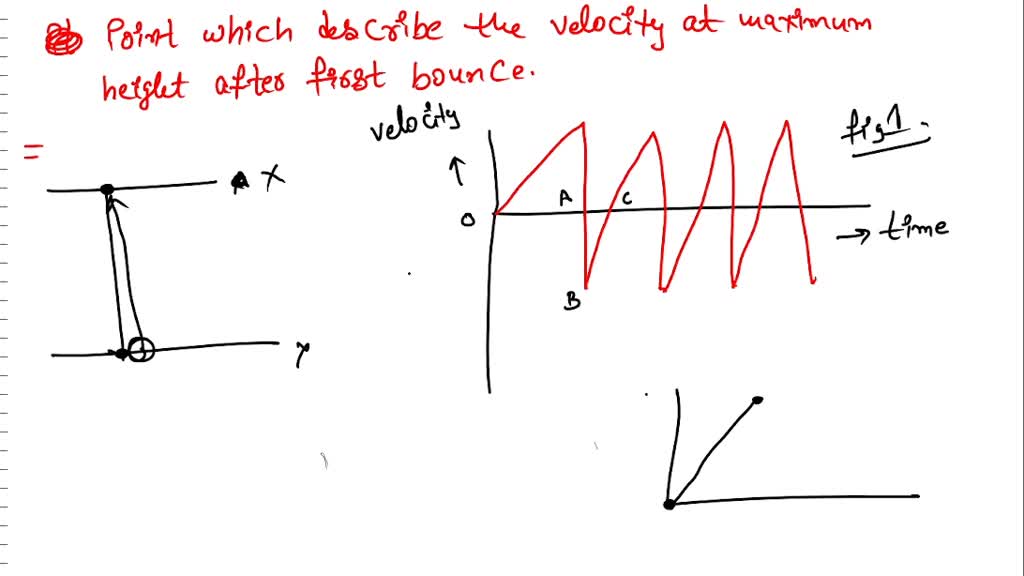 Point which describe the velocity at maximum
height after first bounce.
velocity
fig 1
=
X
A
C
O
→ time
B
Y